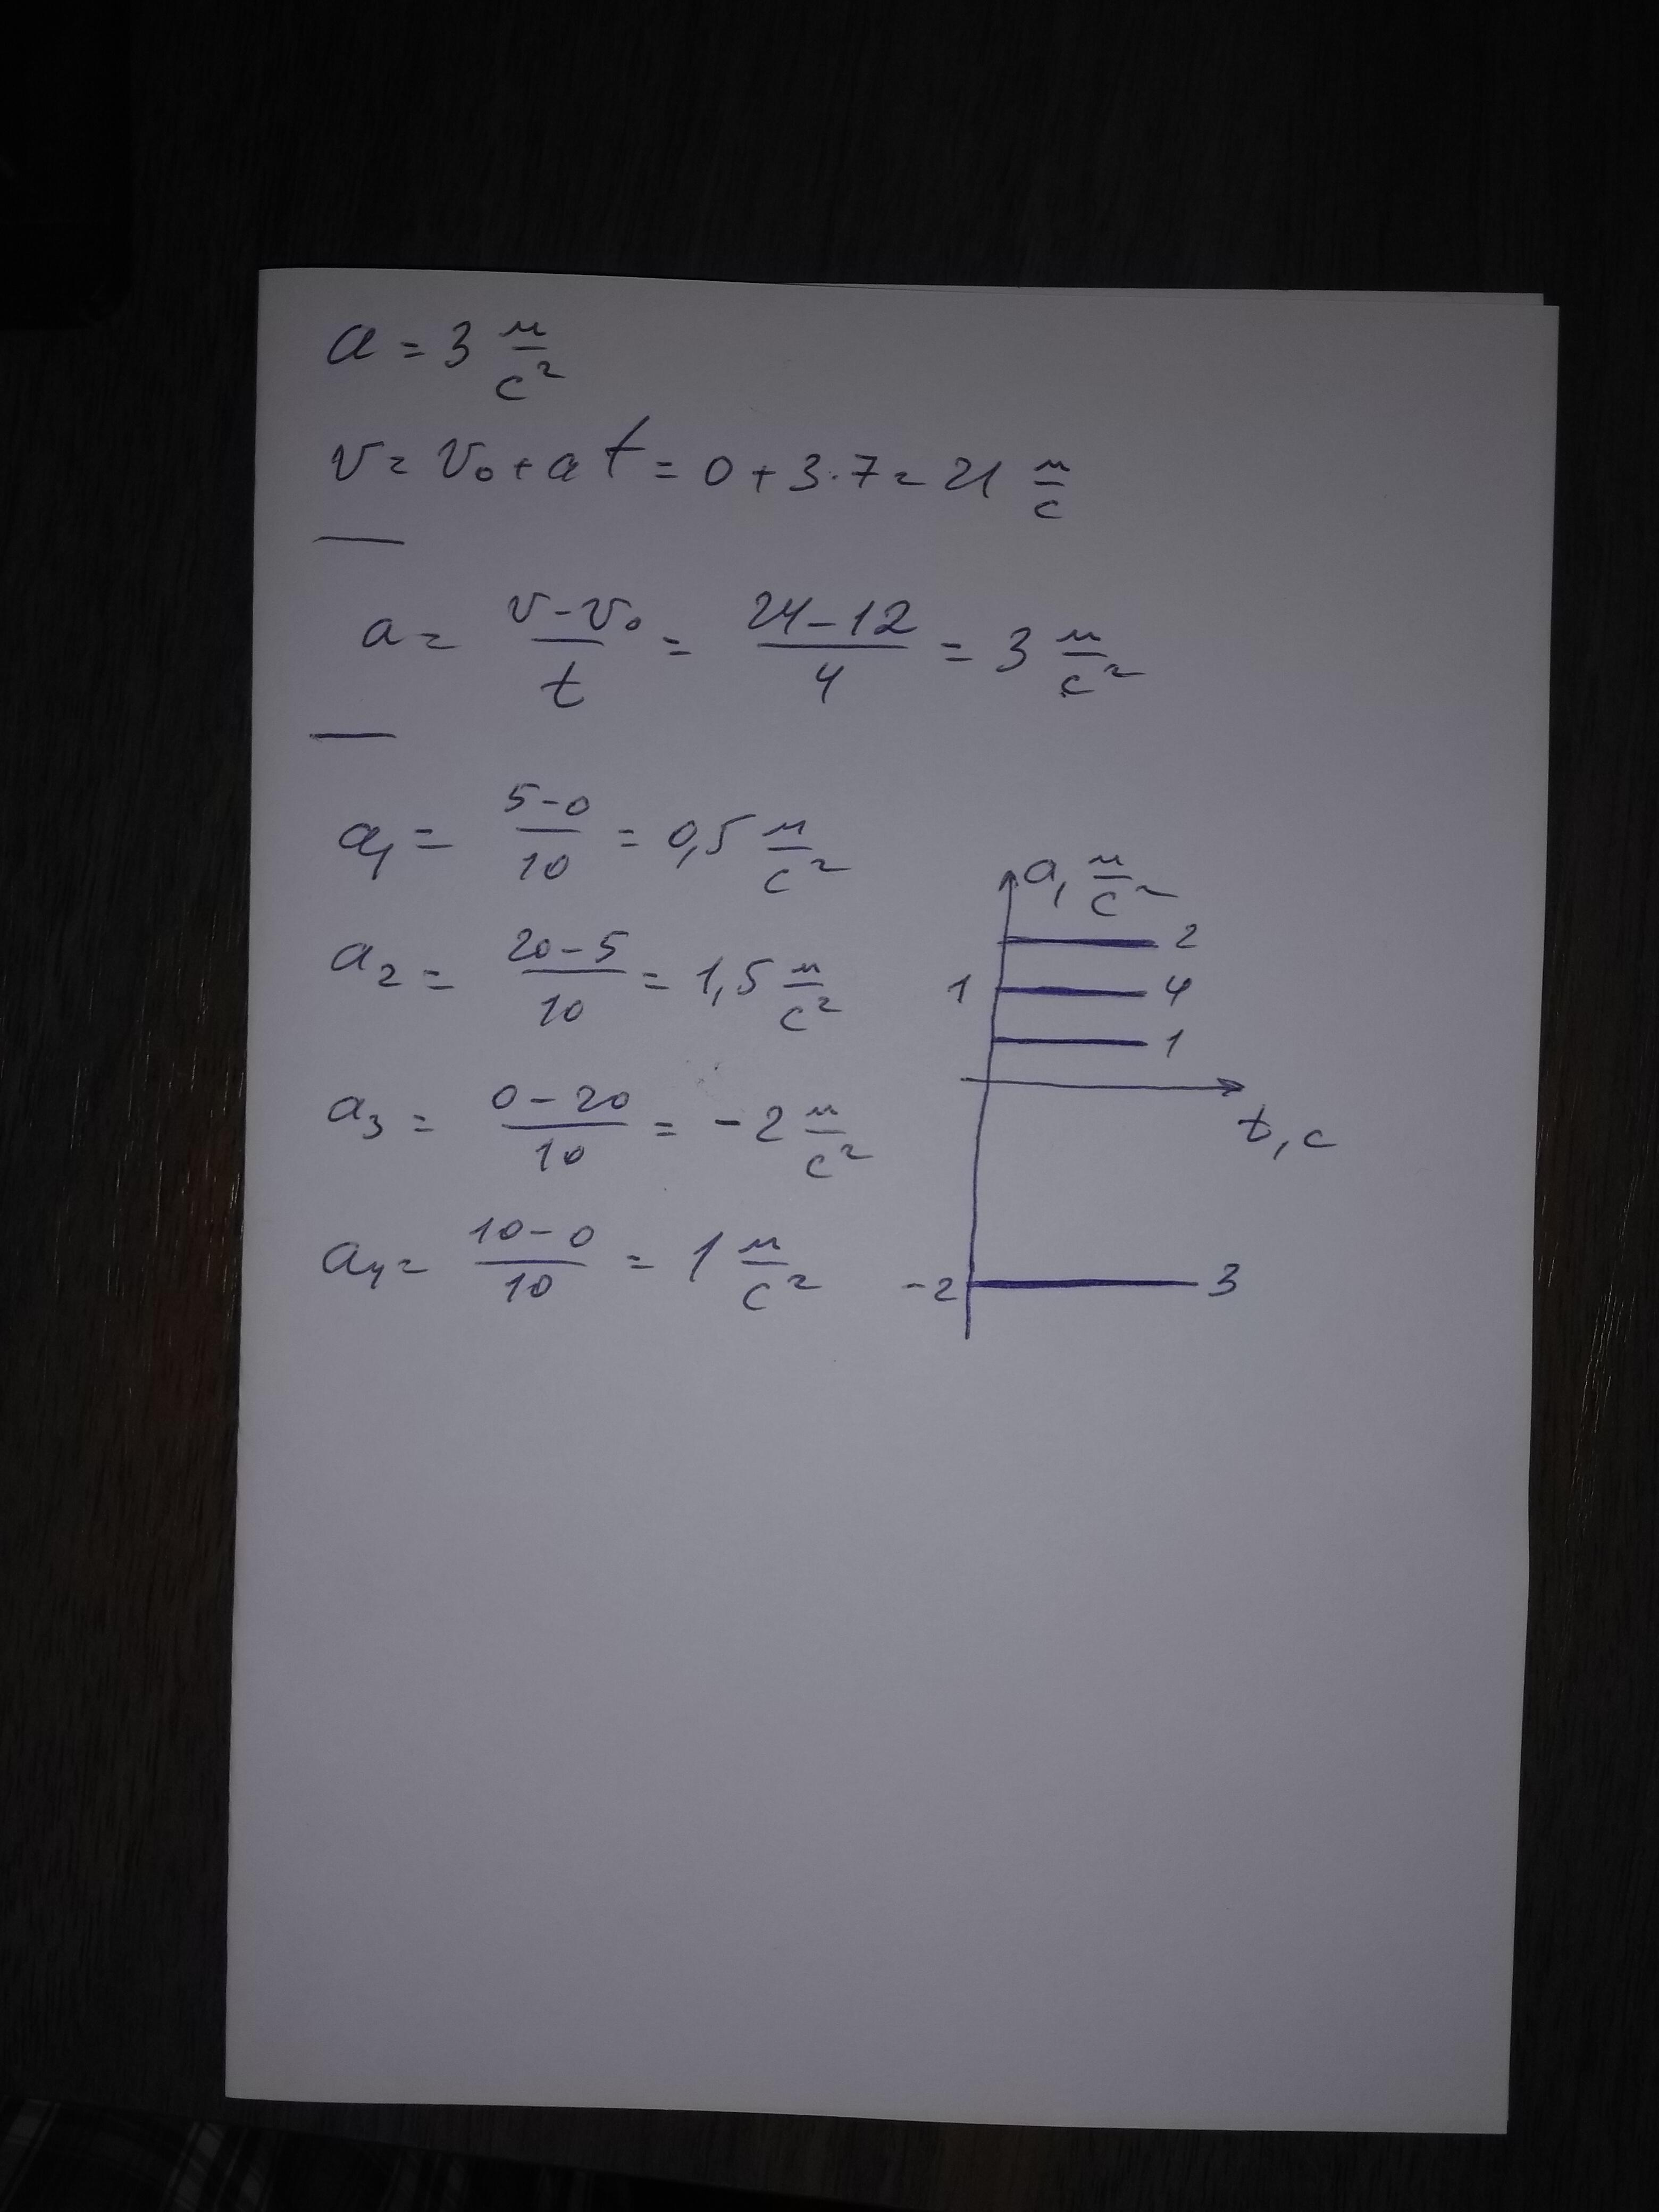 a = 3 м/с²
v = v₀ + a t = 0 + 3·7 = 21 м/с
a = (v - v₀)/t = (24 - 12)/4 = 3 м/с²
a₁ = (5 - 0)/10 = 0,5 м/с²
a₂ = (20 - 5)/10 = 1,5 м/с²
a₃ = (0 - 20)/10 = -2 м/с²
a₄ = (10 - 0)/10 = 1 м/с²
a, м/с²
2
1 4
1
t, с
-2 3